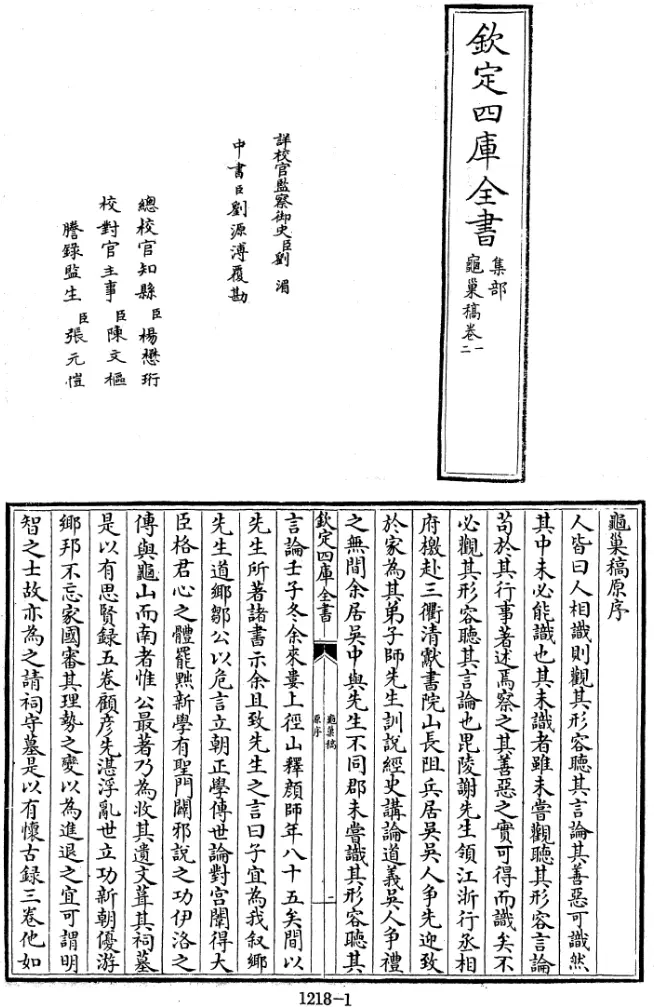 欽定四庫全書
集部
龜巢稿卷一
二
詳校官監察御史臣劉湄
中書臣劉源溥覆勘
總校官知縣臣楊懋珩
校對官主事臣陳文樞
謄錄監生臣張元愷
龜巢稿原序
人皆曰人相識則觀其形容聽其言論其善惡可識然
其中未必能識也其未識者雖未嘗觀聽其形容言論
茍於其行事著述焉察之其善惡之實可得而識矣不
必觀其形容聽其言論也毘陵謝先生領江浙行丞相
府檄赴三衢清獻書院山長阻兵居吳吳人争先迎致
於家為其弟子師先生訓說經史講論道義吳人争禮
之無間余居吳中與先生不同郡未嘗識其形容聽其
欽定四庫全書
龜巢稿
原序
二
言論壬子冬余來婁上徑山釋顔師年八十五矣間以
先生所著諸書示余且致先生之言曰子宜為我叙鄉
先生道鄉鄒公以危言立朝正學傳世論對宫闈得大
臣格君心之體罷黜新學有聖門闢邪說之功伊洛之
傳與龜山而南者惟公最著乃為收其遺文葺其祠墓
是以有思賢録五卷顧彦先湛浮亂世立功新朝優游
鄉邦不忘家國審其理勢之變以為進退之宜可謂明
智之士故亦為之請祠守墓是以有懷古録三卷他如
1218-1